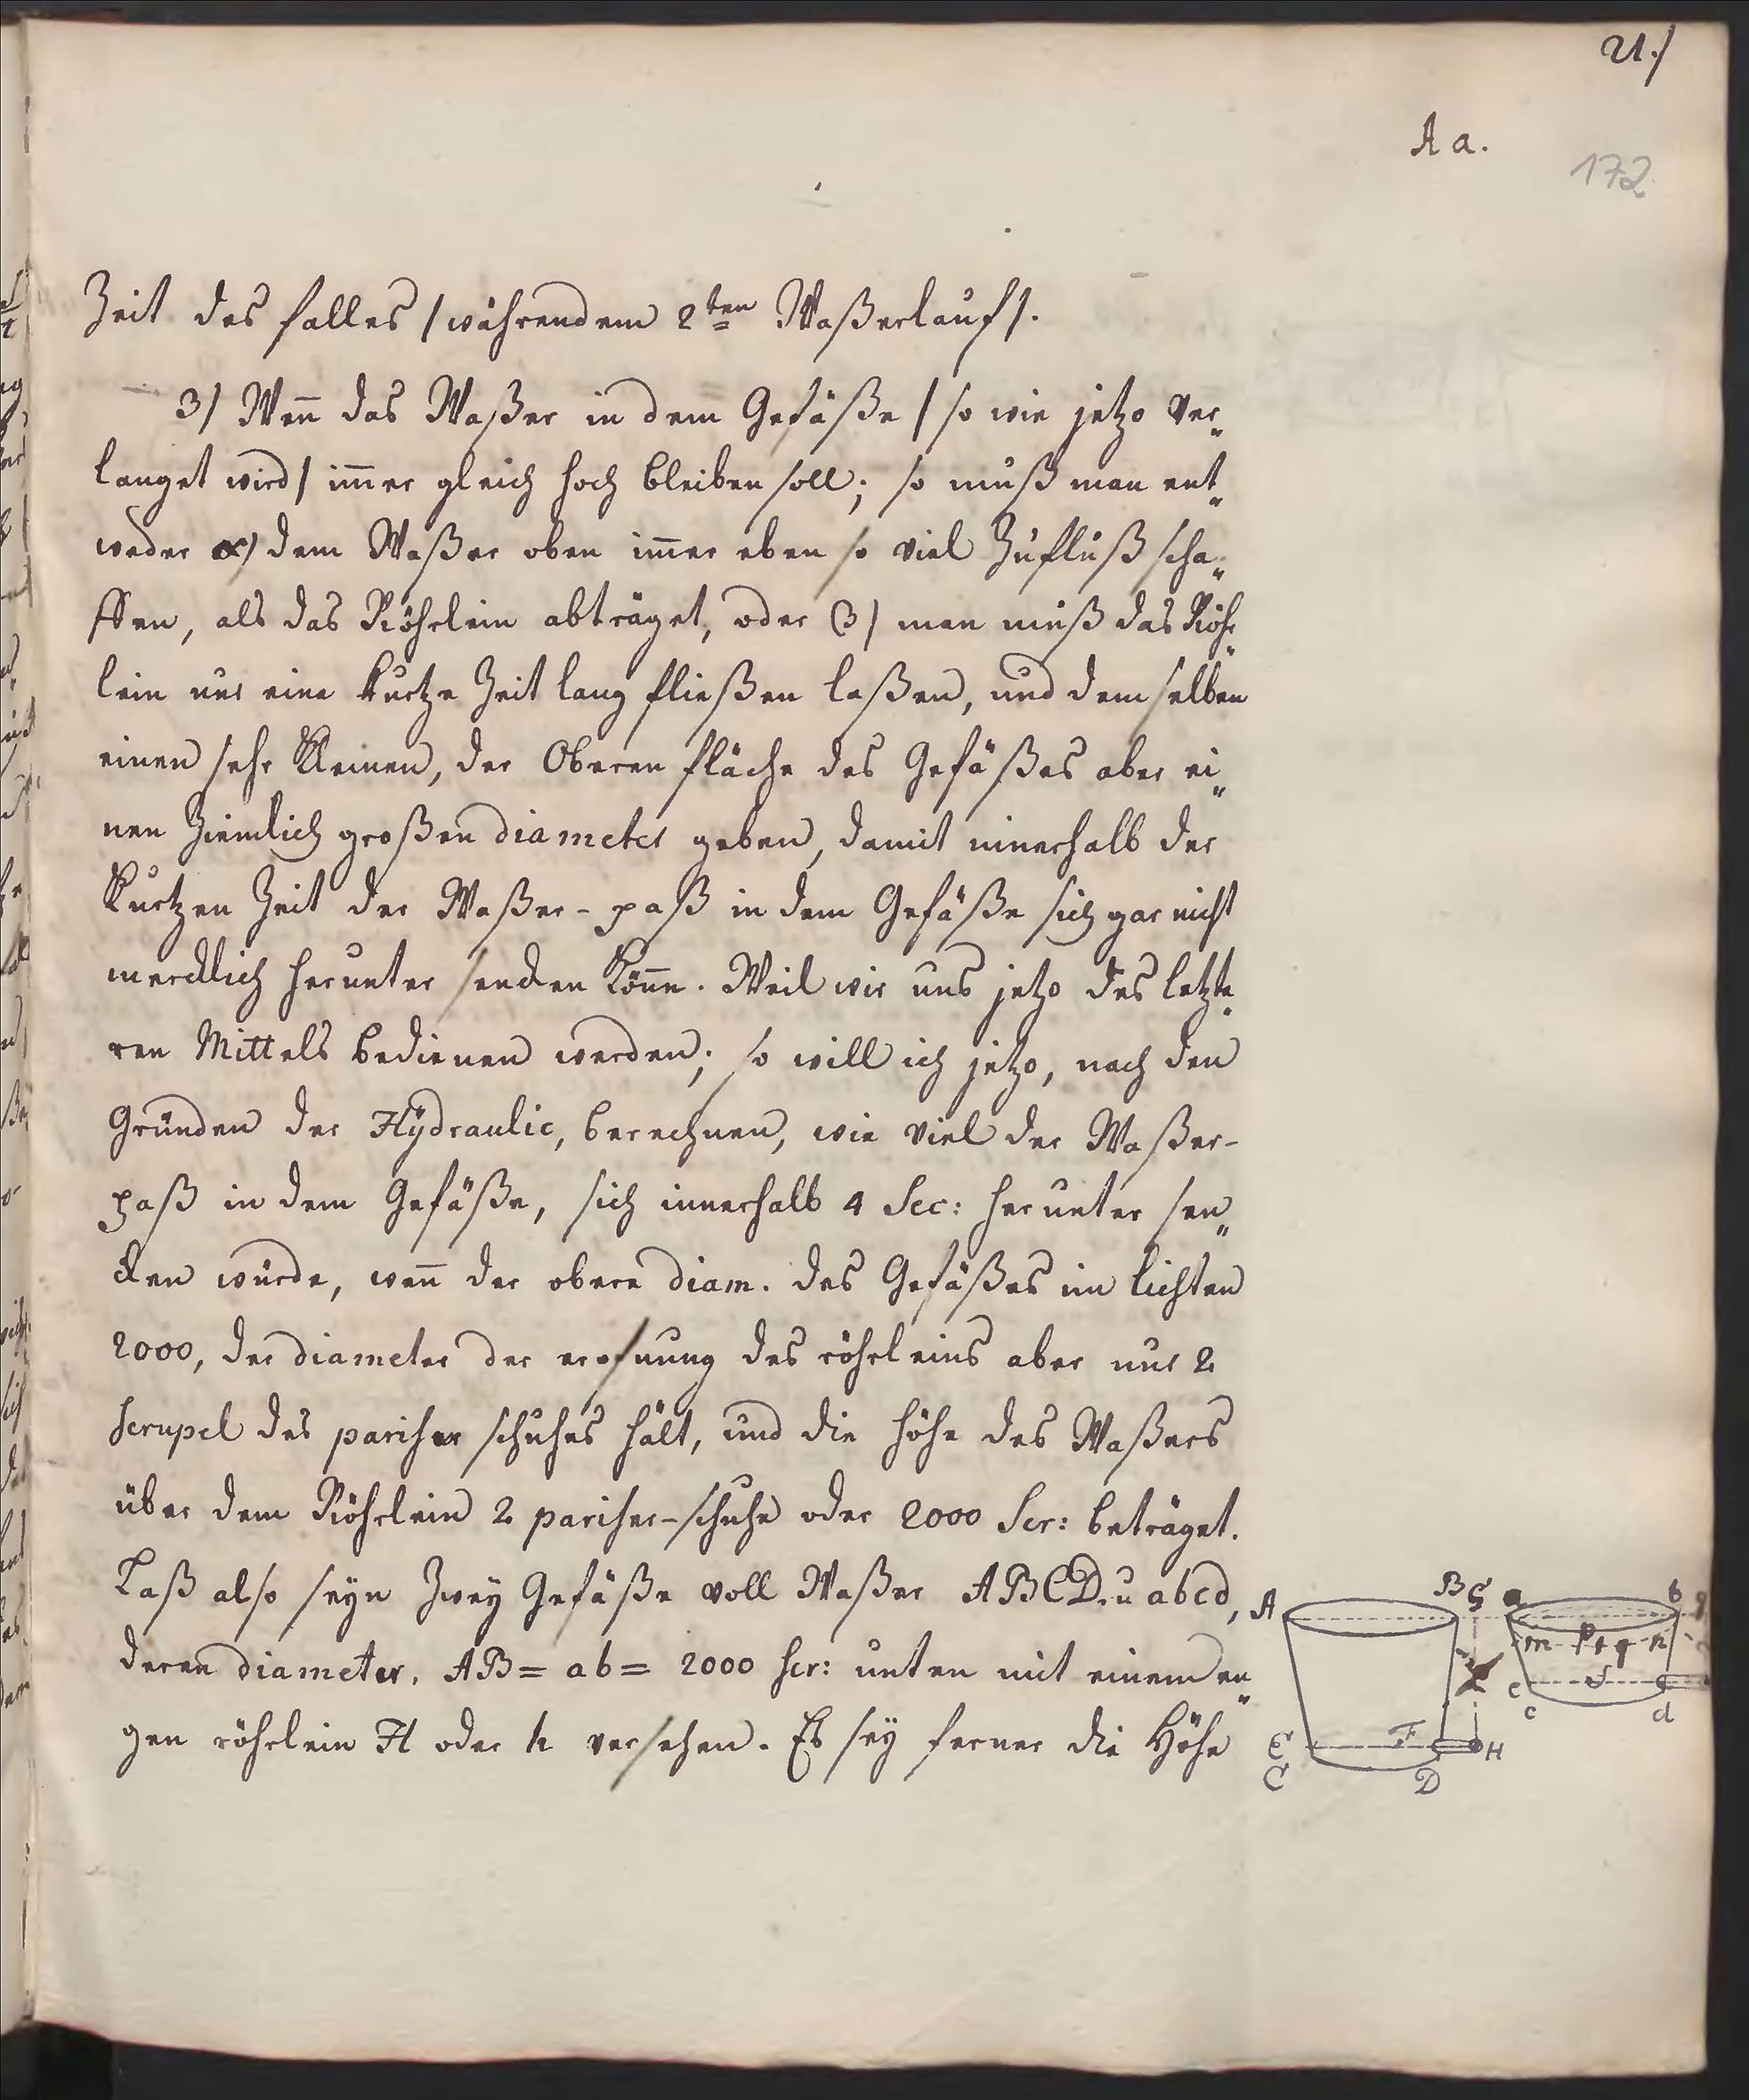 21./
A a.
172
Zeit des falles /währendem 2ten Waßerlauf/.
3/ Wen̅ das Waßer in dem Gefäße / so wie jetzo ver„
langet wird/ im̅er gleich hoch bleiben soll; so muß man ent„
weder α) dem Waßer oben im̅er eben so viel Zufluß scha„
ffen, als das Röhrlein abträget, oder β) man muß das Röhr„
lein nur eine kurtze Zeit lang fließen laßen, und demselben
einen sehr kleinen, der Oberen fläche des Gefäßes aber ei„
nen Ziemlich großen diameter geben, damit innerhalb der
kurtzen Zeit der Waßer-paß in dem Gefäße sich gar nicht
mercklich herunter sencken kön̅e. Weil wir uns jetzo des letzte„
ren Mittels bedienen werden; so will ich jetzo, nach den
Gründen der Hÿdraulic, berechnen, wie viel der Waßer-
paß in dem Gefäße, sich innerhalb 4 Sec: herunter sen„
cken würde, wen̅ der obere diam. des Gefäßes im lichten
2000, der diameter der erofnung des röhrleins aber nur 2
Scrupel des pariser schuhes hält, und die höhe des Waßers
über dem Röhrlein 2 pariser-schuhe oder 2000 Scr: beträget.
Laß also seyn Zwey Gefäße voll Waßer ABCD. u abcd,
deren diameter. AB = ab = 2000 scr: unten mit einem en„
gen röhrlein H oder h versehen. Es sey ferner die Höhe
A B G a b g
m p r q n
E F H e f
C D c d